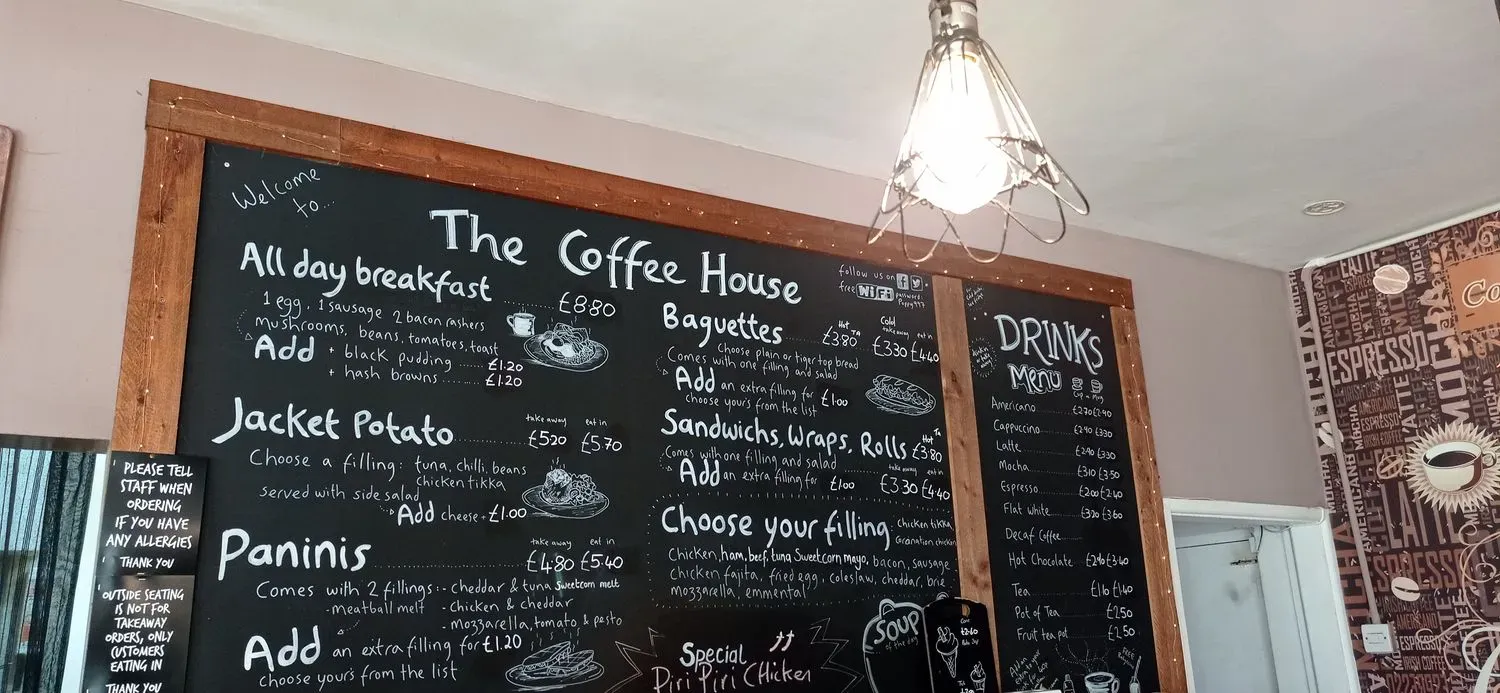 Welcome
to...
The Coffee House
follow us on
free WiFi password:
All day breakfast ........ £8.80
1 egg, 1 sausage 2 bacon rashers
mushrooms, beans, tomatoes, toast
Add + black pudding ...... £1.20
+ hash browns ......... £1.20
Jacket Potato
take away eat in
£5.20 £5.70
Choose a filling: tuna, chilli, beans
chicken tikka
served with side salad
Add cheese + £1.00
Paninis
take away eat in
£4.80 £5.40
Comes with 2 fillings:- cheddar & tuna sweetcorn melt
- meatball melt - chicken & cheddar
- mozzarella, tomato & pesto
Add an extra filling for £1.20
choose yours from the list
Baguettes
Hot TA
£3.80
Cold
take away eat in
£3.30 £4.40
Choose plain or tiger top bread
Comes with one filling and salad
Add an extra filling for £1.00
choose yours from the list
Sandwichs, Wraps, Rolls
Hot TA
£3.80
Comes with one filling and salad
take away eat in
Add an extra filling for £1.00 £3.30 £4.40
Choose your filling: chicken tikka
Coronation chicken
Chicken, ham, beef, tuna sweetcorn mayo, bacon, sausage
chicken fajita, fried egg, coleslaw, cheddar, brie
mozzarella, emmental
Special
Piri Piri Chicken
SOUP
of the day
DRINKS
MENU
Cup Mug
Americano £2.70 £2.90
Cappuccino £2.90 £3.30
Latte £2.90 £3.30
Mocha £3.10 £3.50
Espresso £2.00 £2.40
Flat white £3.20 £3.60
Decaf Coffee
Hot Chocolate £2.90 £3.40
Tea £1.10 £1.40
Pot of Tea £2.50
Fruit tea pot £2.50
PLEASE TELL
STAFF WHEN
ORDERING
IF YOU HAVE
ANY ALLERGIES
THANK YOU
OUTSIDE SEATING
IS NOT FOR
TAKEAWAY
ORDERS, ONLY
CUSTOMERS
EATING IN
THANK YOU
Co
ESPRESSO
MOCHA
LATTE
AMERICANO
ESPRESSO
IRISH COFFEE